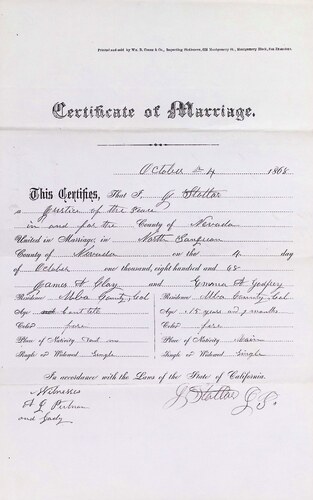 Printed and sold by Wm. B. Cooke & Co., Regarding Stationers, 624 Montgomery St., Montgomery Block, San Francisco.
Certificate of Marriage.
October 4 1868
This Certifies, That I, J Slattar
a Justice of the Peace
in and for the County of Nevada
United in Marriage, in North Sanjuan
County of Nevada on the 4 day
of October one thousand, eight hundred and 68
James A Clay and Emma A Godfrey
Residence Uba County Cal Residence Uba County Cal
Age Age 15 years and 9 months
Color Color
Place of Nativity Place of Nativity Maine
Single or Widowed Single Single or Widowed Single
In accordance with the Laws of the State of California.
Witnesses J Slattar
A G Putnam
and Lady